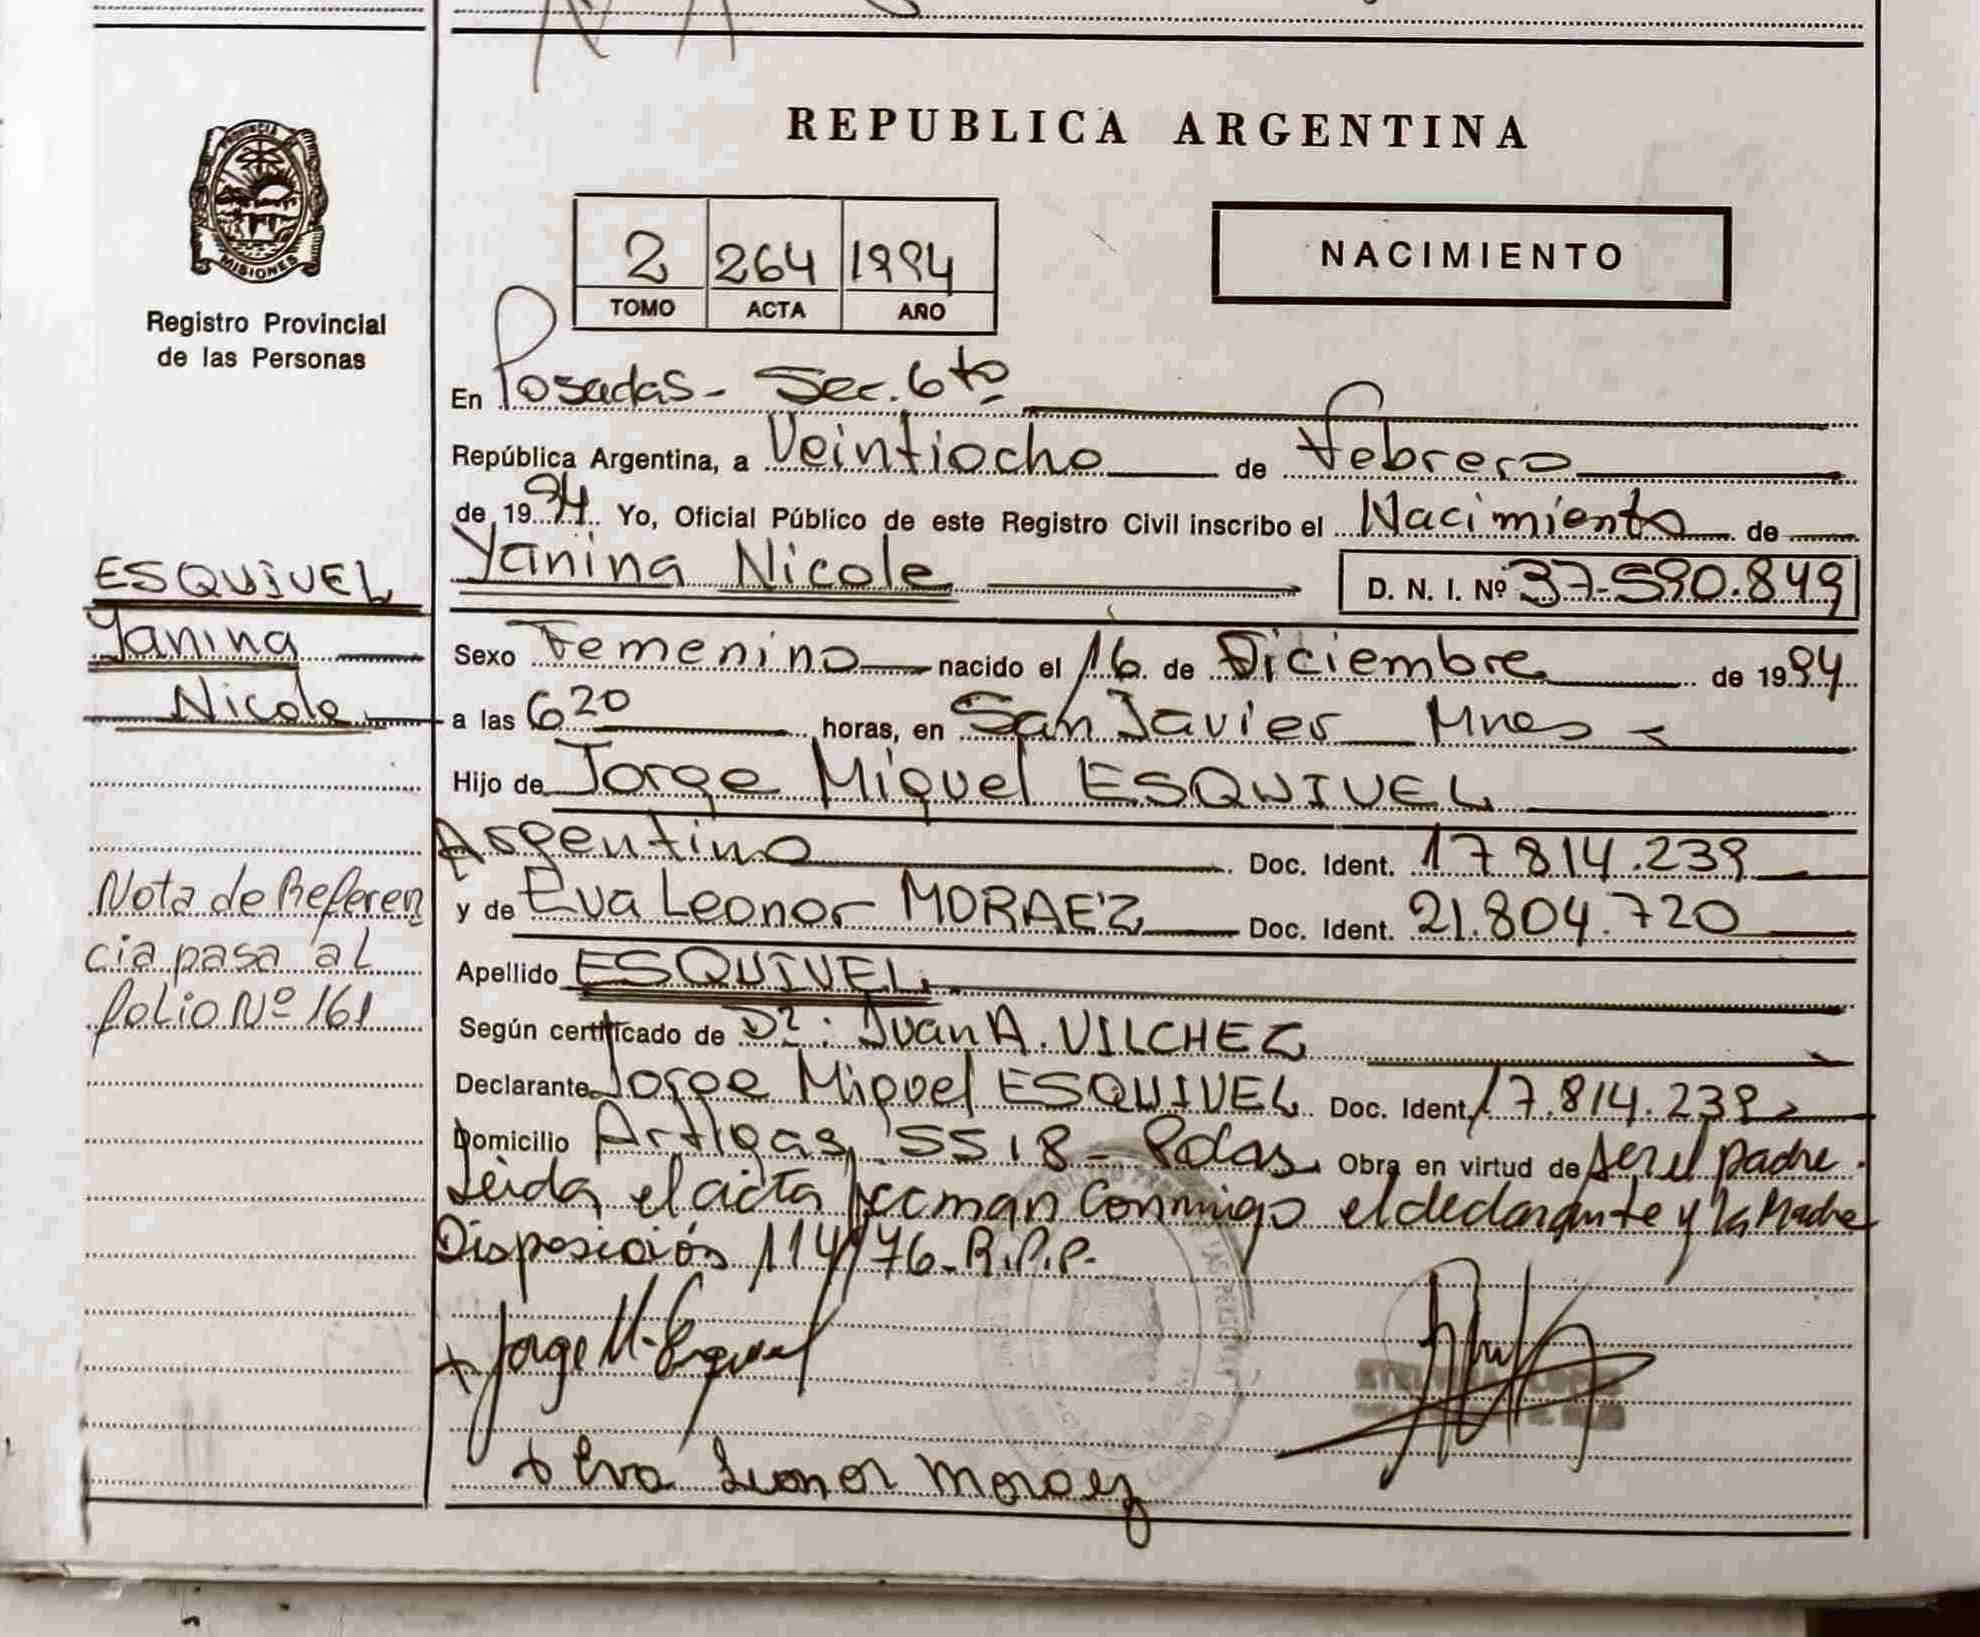 REPUBLICA ARGENTINA
PROVINCIA
MISIONES
Registro Provincial
de las Personas
2 264 1994
TOMO ACTA AÑO
NACIMIENTO
En Posadas - Sec. 6to
República Argentina, a Veintiocho de Febrero
de 1994 Yo, Oficial Público de este Registro Civil inscribo el Nacimiento de
Yanina Nicole D. N. I. Nº 37.590.849
ESQUIVEL
Yanina
Nicole
Sexo Femenino nacido el 16 de Diciembre de 1994
a las 6 20 horas, en San Javier Mnes
Hijo de Jorge Miguel ESQUIVEL
Argentino Doc. Ident. 17.814.239
y de Eva Leonor MORAEZ Doc. Ident. 21.804.720
Apellido ESQUIVEL
Nota de Referen
cia pasa al
folio Nº 161
Según certificado de Dr. Juan A. VILCHEZ
Declarante Jorge Miguel ESQUIVEL Doc. Ident. 17.814.239
Domicilio Artigas 5518 - Pdas Obra en virtud de ser el padre.
Leida el acta firman conmigo el declarante y la Madre
Disposición 114/76 - R.P.P.
Jorge M. Esquivel
Eva Leonor Moraez